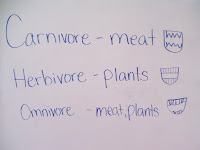 Carnivore - meat
Herbivore - plants
Omnivore - meat, plants